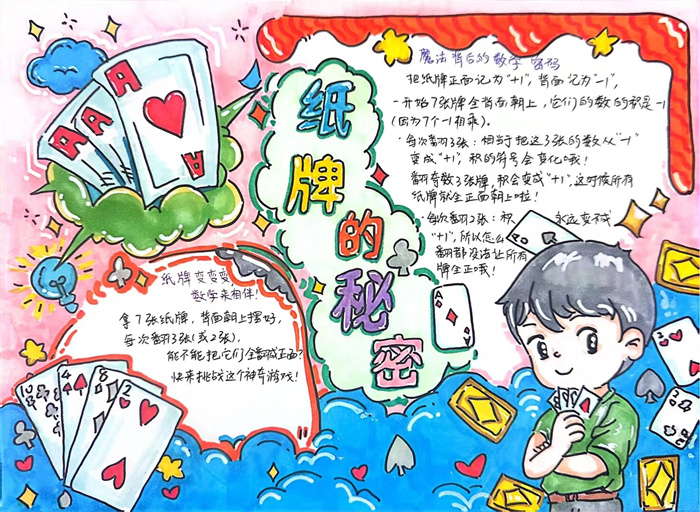 纸牌的秘密
魔法背后的数学密码
把纸牌正面记为"+1", 背面记为"-1",
·开始7张牌全背面朝上, 它们的数的积是-1
(因为7个-1相乘)。
·每次翻3张: 相当于把这3张的数从"-1"
变成"+1", 积的符号会变化哦!
翻奇数3张牌, 积会变成"+1", 这时候所有
纸牌就全正面朝上啦!
·每次翻2张: 积 永远变不成
"+1", 所以怎么
翻都没法让所有
牌全正哦!
纸牌变变变,
数学来相伴!
拿7张纸牌, 背面朝上摆好,
每次翻3张(或2张),
能不能把它们全翻成正面?
快来挑战这个神奇游戏!
A
A
A
A
A
A
A
10
4
8
2
3
3